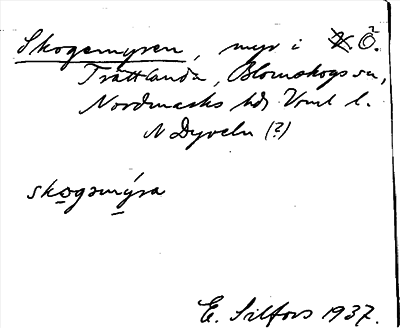 Skogemyren, myr i Ö.
Trättlanda, Blomskogs sn,
Nordmarks hd, Vrml l.
N Dyveln (?)
skogəmýra
E. Silfors 1937.